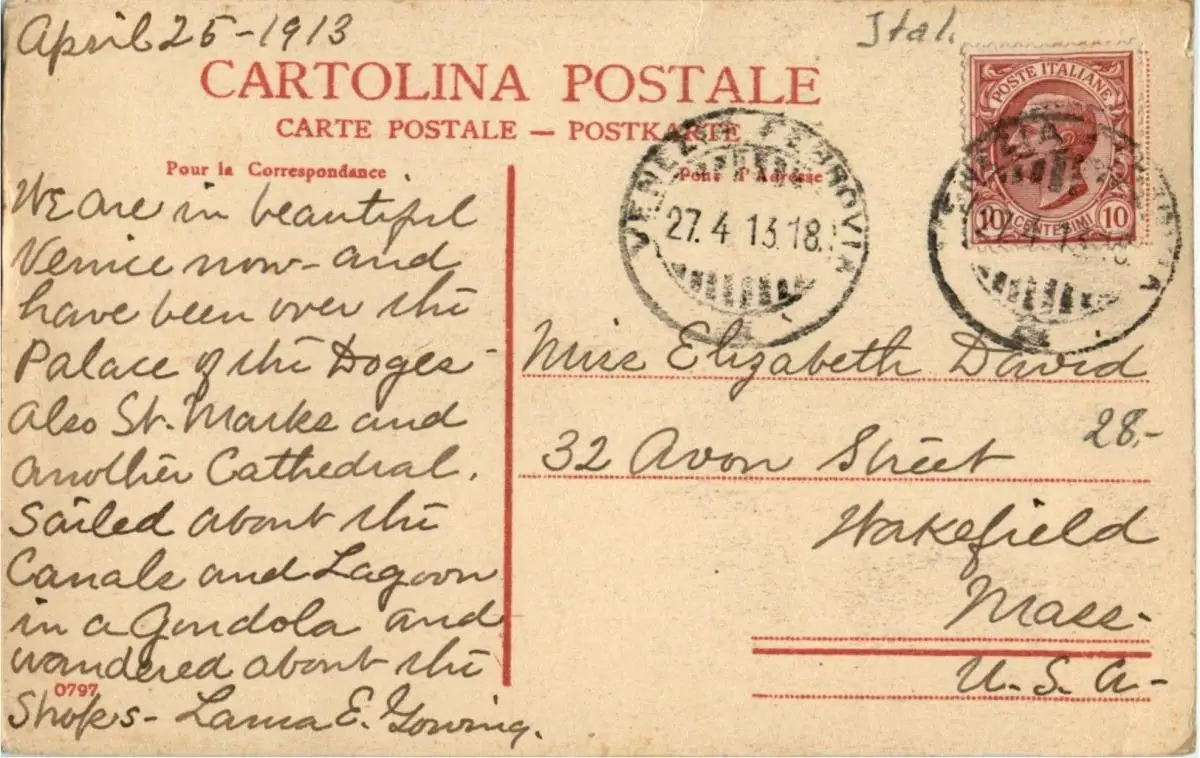 April 25-1913
Ital.
CARTOLINA POSTALE
CARTE POSTALE — POSTKARTE
Pour la Correspondance
Pour l'Adresse
POSTE ITALIANE
10 CENTESIMI 10
VENEZIA FERROVIA
27.4 13.18.
VENEZIA FERROVIA
27.4 13.18.
We are in beautiful
Venice now - and
have been over the
Palace of the Doges -
also St. Marks and
another Cathedral.
Sailed about the
Canals and Lagoon
in a Gondola and
wandered about the
0797
Shops - E. Gowing.
Miss Elizabeth David
28.-
32 Avon Street
Wakefield
Mass.
U.S.A-